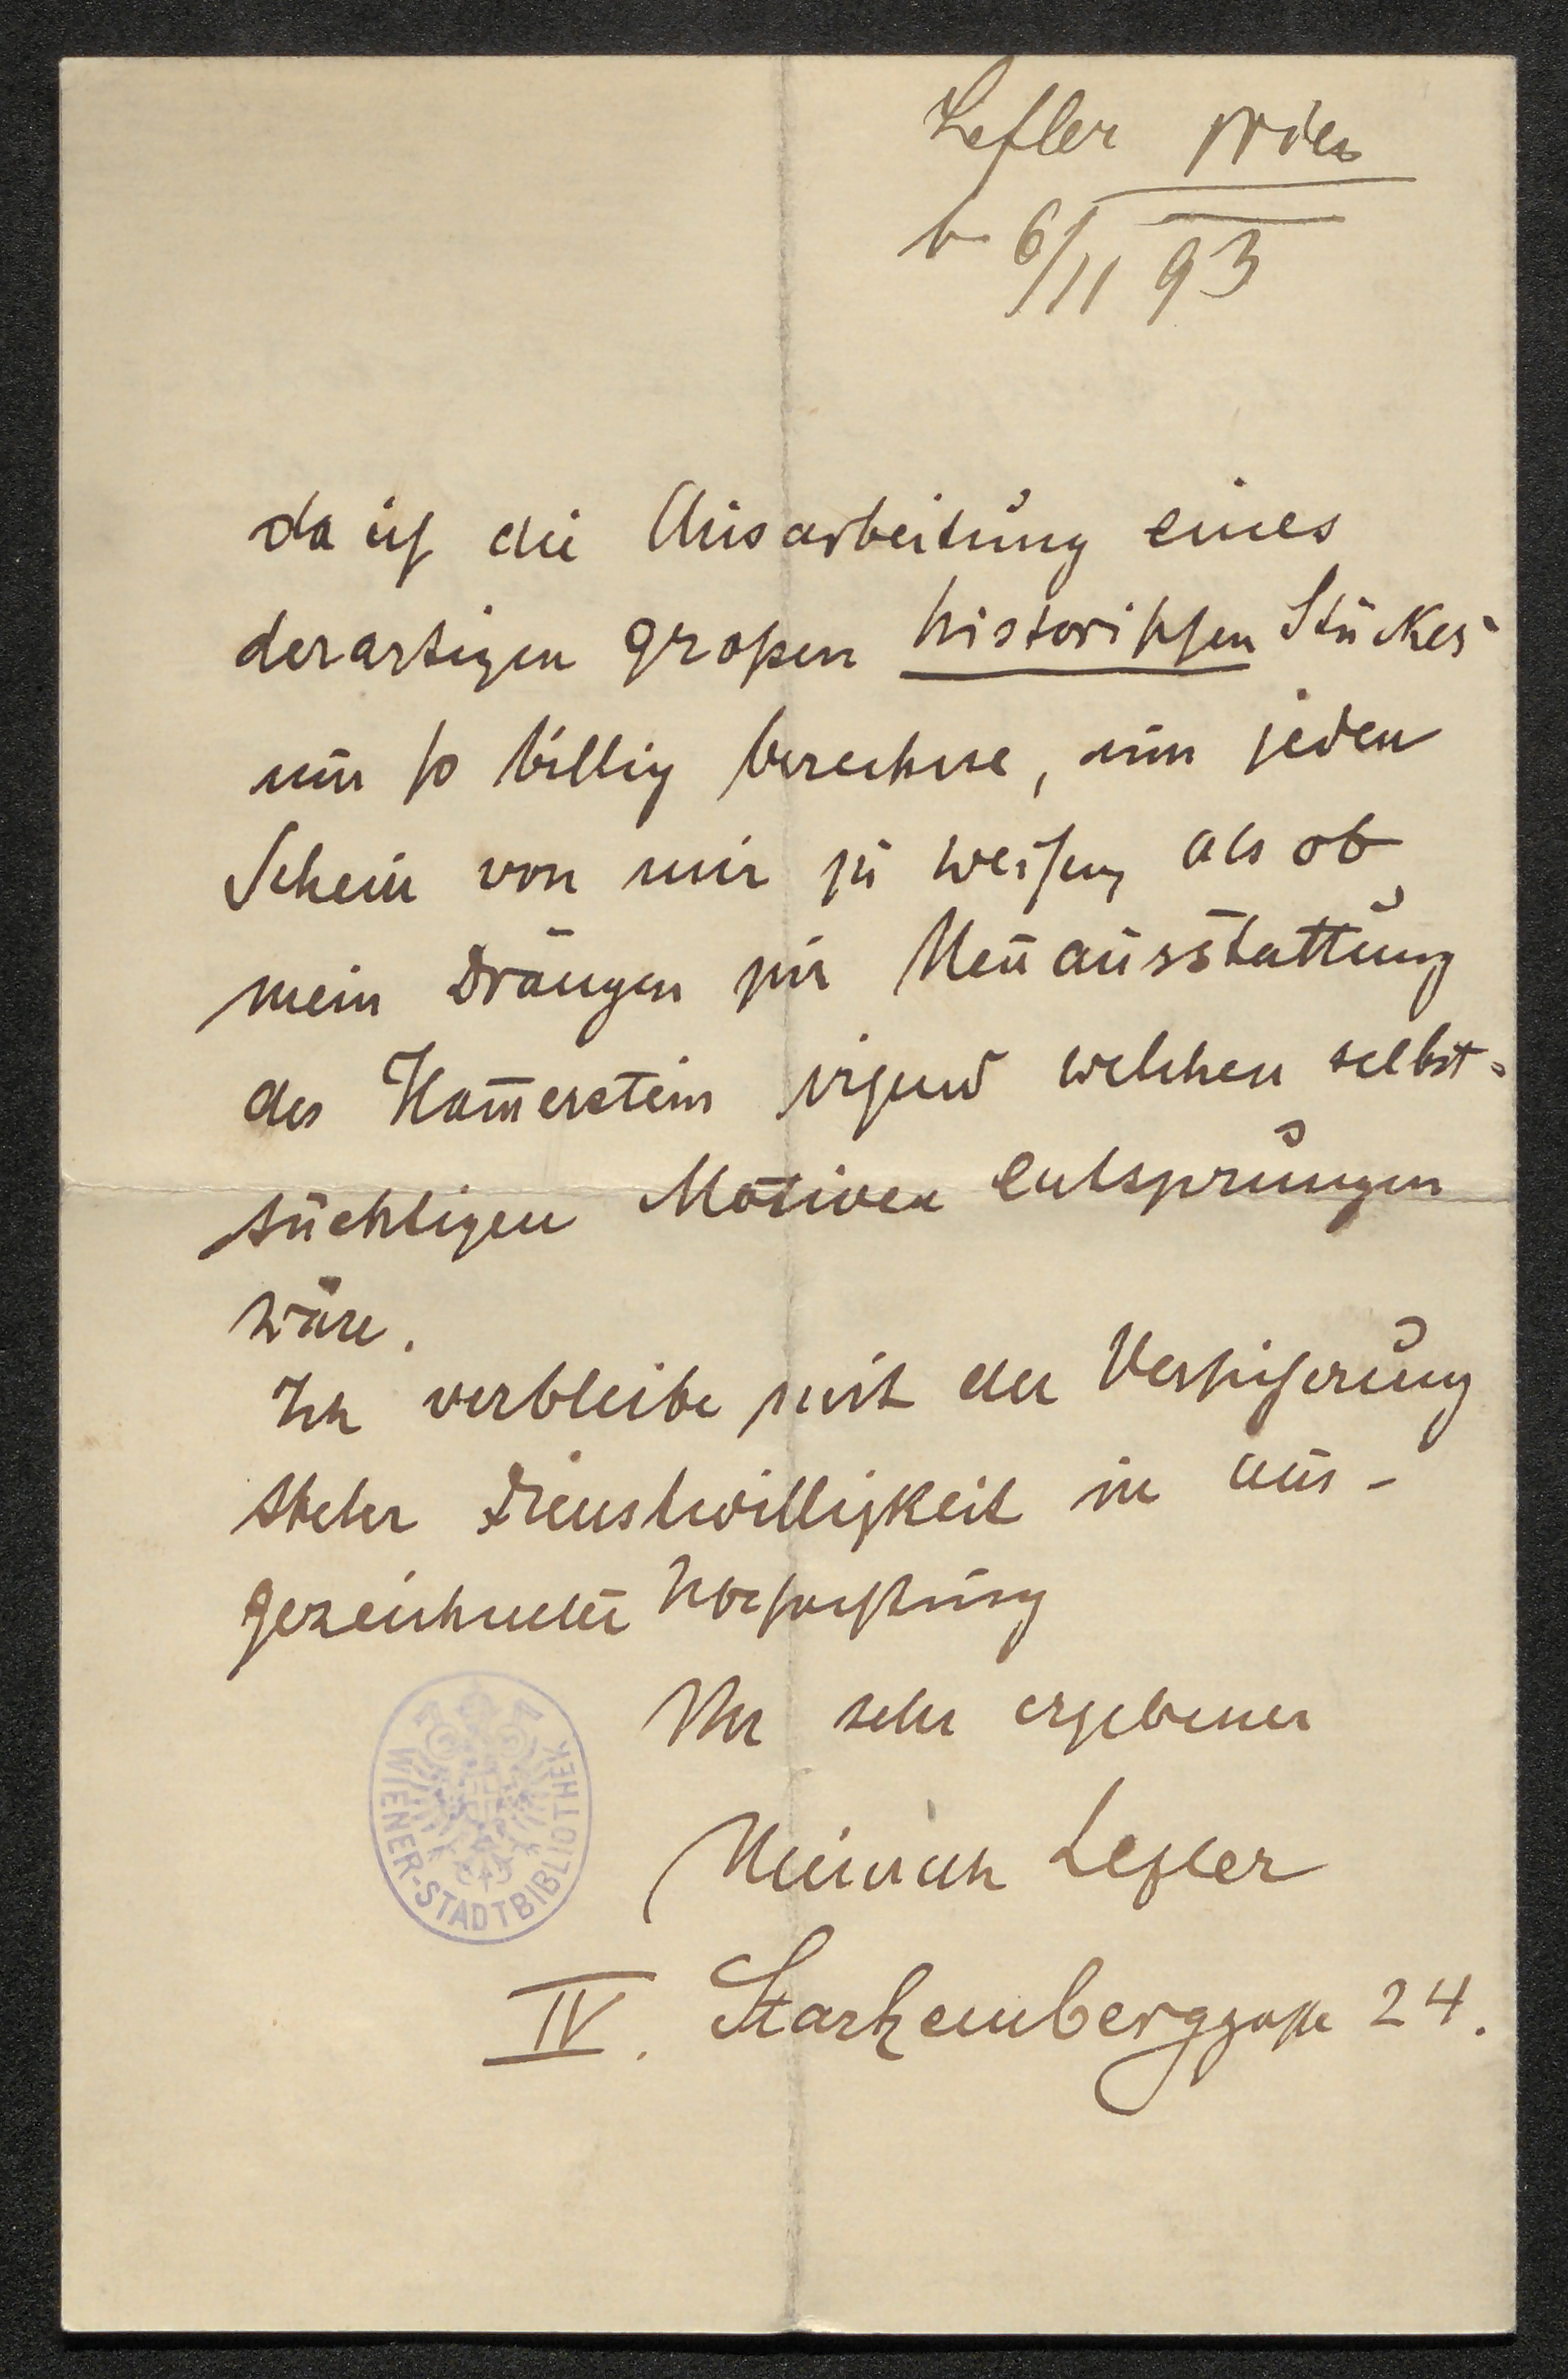 Lefler Wien
b. 6/11 93
da ich die Ausarbeitung eines
derartigen großen historischen Stückes
nur so billig berechne, um jeden
Schein von mir zu weisen, als ob
mein Drängen zur Neuausstattung
des Ham̅erstein irgend welchen selbst=
süchtigen Motiven entsprungen
wäre.
Ich verbleibe mit der Versicherung
steter Dienstwilligkeit in aus-
gezeichneter Hochachtung
Ihr sehr ergebener
Heinrich Lefler
IV. Starhemberggasse 24.
WIENER-STADTBIBLIOTHEK